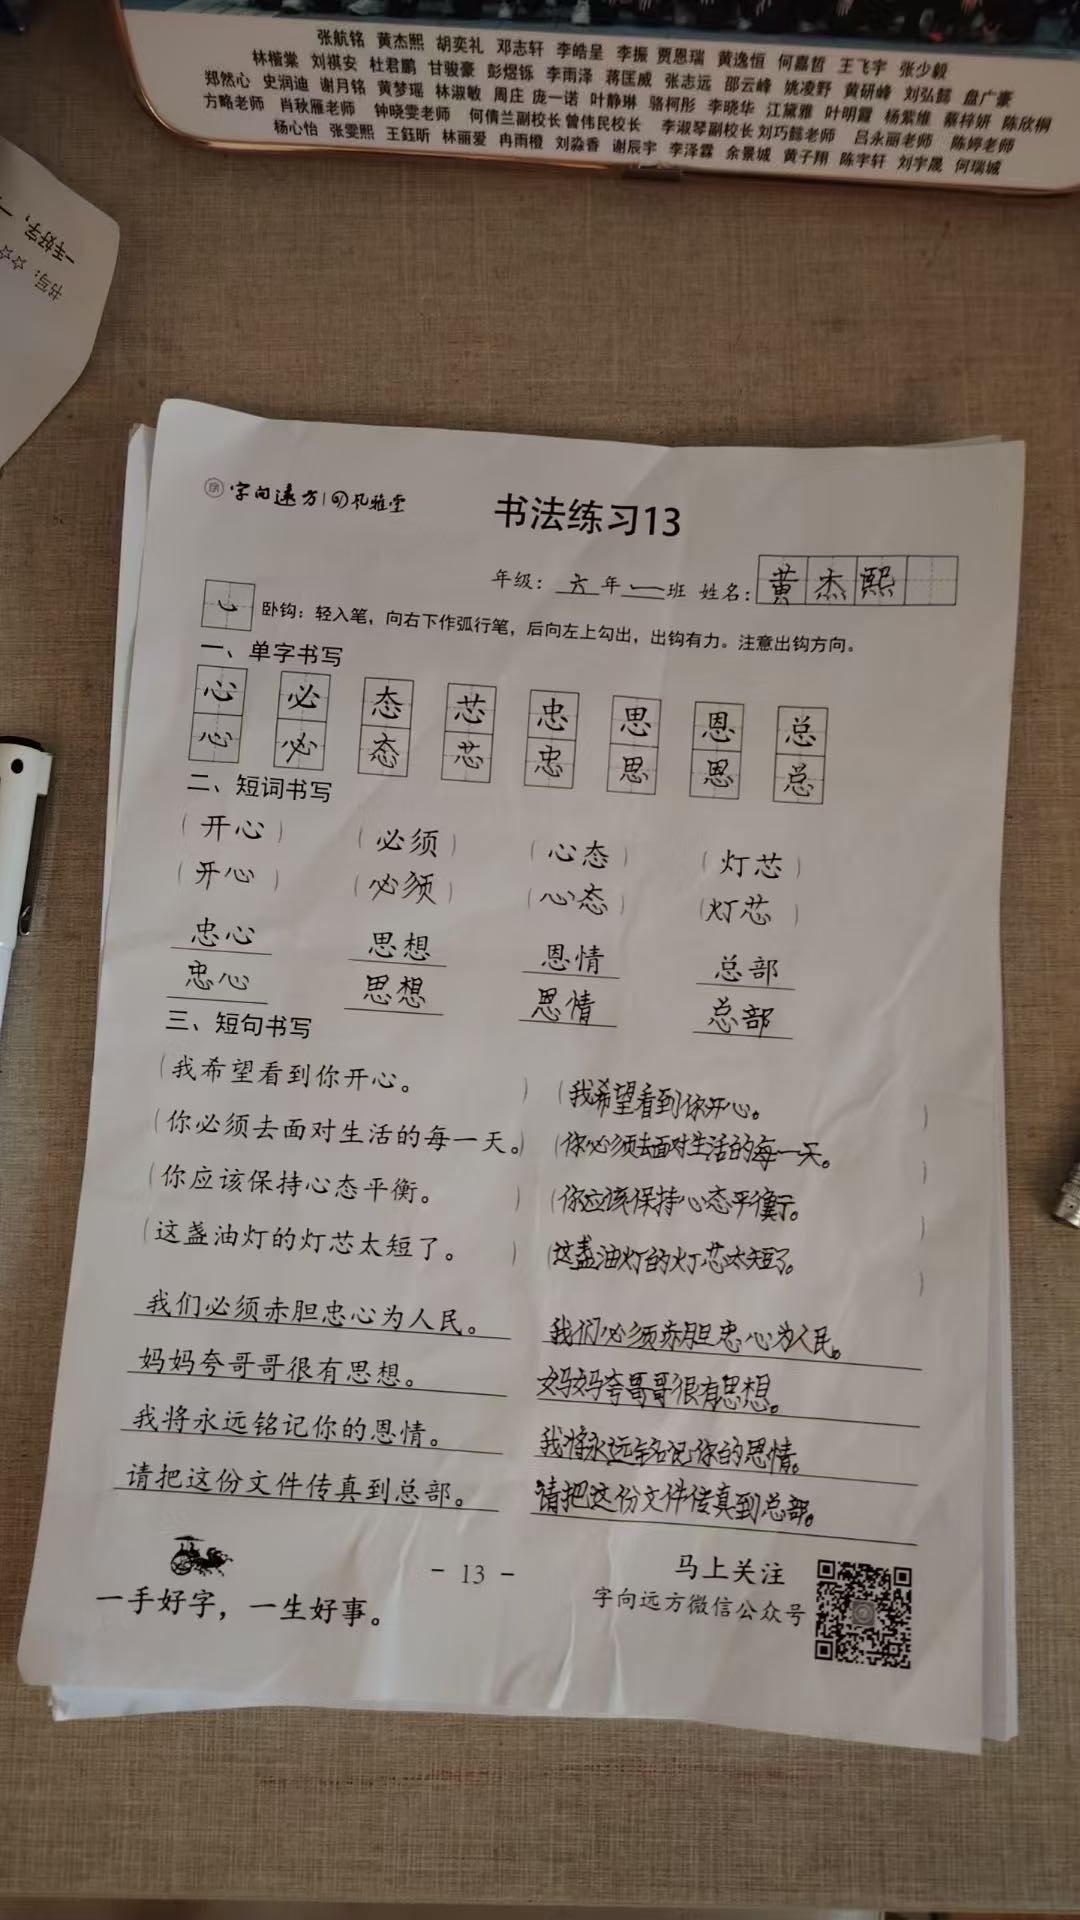 张航铭 黄杰熙 胡奕礼 邓志轩 李皓呈 李振 贾恩瑞 黄逸恒 何嘉哲 王飞宇 张少毅
林楷棠 刘祺安 杜君鹏 甘骏豪 彭煜铄 李雨泽 蒋匡威 张志远 邵云峰 姚凌野 黄研峰 刘弘懿 盘广豪
郑然心 史润迪 谢月铭 黄梦瑶 林淑敏 周庄 庞一诺 叶静琳 骆柯彤 李晓华 江黛雅 叶明霞 杨紫维 蔡梓妍 陈欣桐
方略老师 肖秋雁老师 钟晓雯老师 何倩兰副校长 曾伟民校长 李淑琴副校长 刘巧懿老师 吕永丽老师 陈婷老师
杨心怡 张雯熙 王鈺昕 林丽爱 冉雨橙 刘淼香 谢辰宇 李泽霖 余景城 黄子翔 陈宇轩 刘宇晟 何瑞城
一手好字，一
书写：☆☆
字向远方 风雅堂
书法练习13
年级：六年一班 姓名：黄杰熙
卧钩：轻入笔，向右下作弧行笔，后向左上勾出，出钩有力。注意出钩方向。
一、单字书写
心 必 态 芯 忠 思 恩 总
心 必 态 芯 忠 思 恩 总
二、短词书写
（开心） （必须） （心态） （灯芯）
（开心） （必须） （心态） （灯芯）
忠心 思想 恩情 总部
忠心 思想 恩情 总部
三、短句书写
（我希望看到你开心。） （我希望看到你开心。）
（你必须去面对生活的每一天。） （你必须去面对生活的每一天。）
（你应该保持心态平衡。） （你应该保持心态平衡。）
（这盏油灯的灯芯太短了。） （这盏油灯的灯芯太短了。）
我们必须赤胆忠心为人民。 我们必须赤胆忠心为人民。
妈妈夸哥哥很有思想。 妈妈夸哥哥很有思想。
我将永远铭记你的恩情。 我将永远铭记你的恩情。
请把这份文件传真到总部。 请把这份文件传真到总部。
一手好字，一生好事。
- 13 -
马上关注
字向远方微信公众号